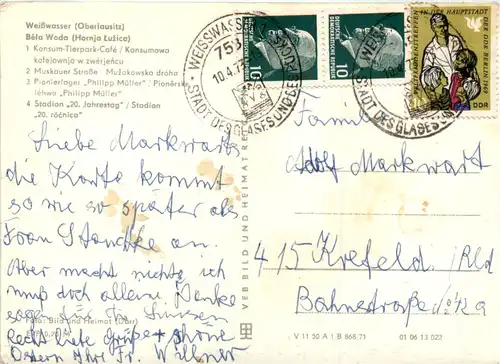 Weißwasser (Oberlausitz)
Běła Woda (Hornja Łužica)
1 Konsum-Tierpark-Café / Konsumowa
kofejownja w zwěrjeńcu
2 Muskauer Straße Mužakowska dróha
3 Pionierlager „Philipp Müller" / Pioněrske
lěhwo „Philipp Müller"
4 Stadion „20. Jahrestag" / Stadion
„20. róčnica"
WEISSWASSER
75
10.4.7
STADT DES GLASES UND DE
10
DEUTSCHE DEMOKRATISCHE REPUBLIK
10
DEUTSCHE DEMOKRATISCHE REPUBLIK
WEISSWAS
STADT DES GLASES
IN DER HAUPTSTADT
DER DDR BERLIN 1969
DDR
Liebe Markwarts
die Karte kommt
so wie so später als
Frau an.
Aber macht nichts ich
muß doch allen Danke
sagen für
Recht liebe Grüße + schöne
Ostern Ihr Fr. Willner
Familie
Adolf Markwart
415 Krefeld / Rld
Bahnstraße
VEB BILD UND HEIMAT REI
Foto: Bild und Heimat
V 11 50 A 1 B 868/71 01 06 13 022